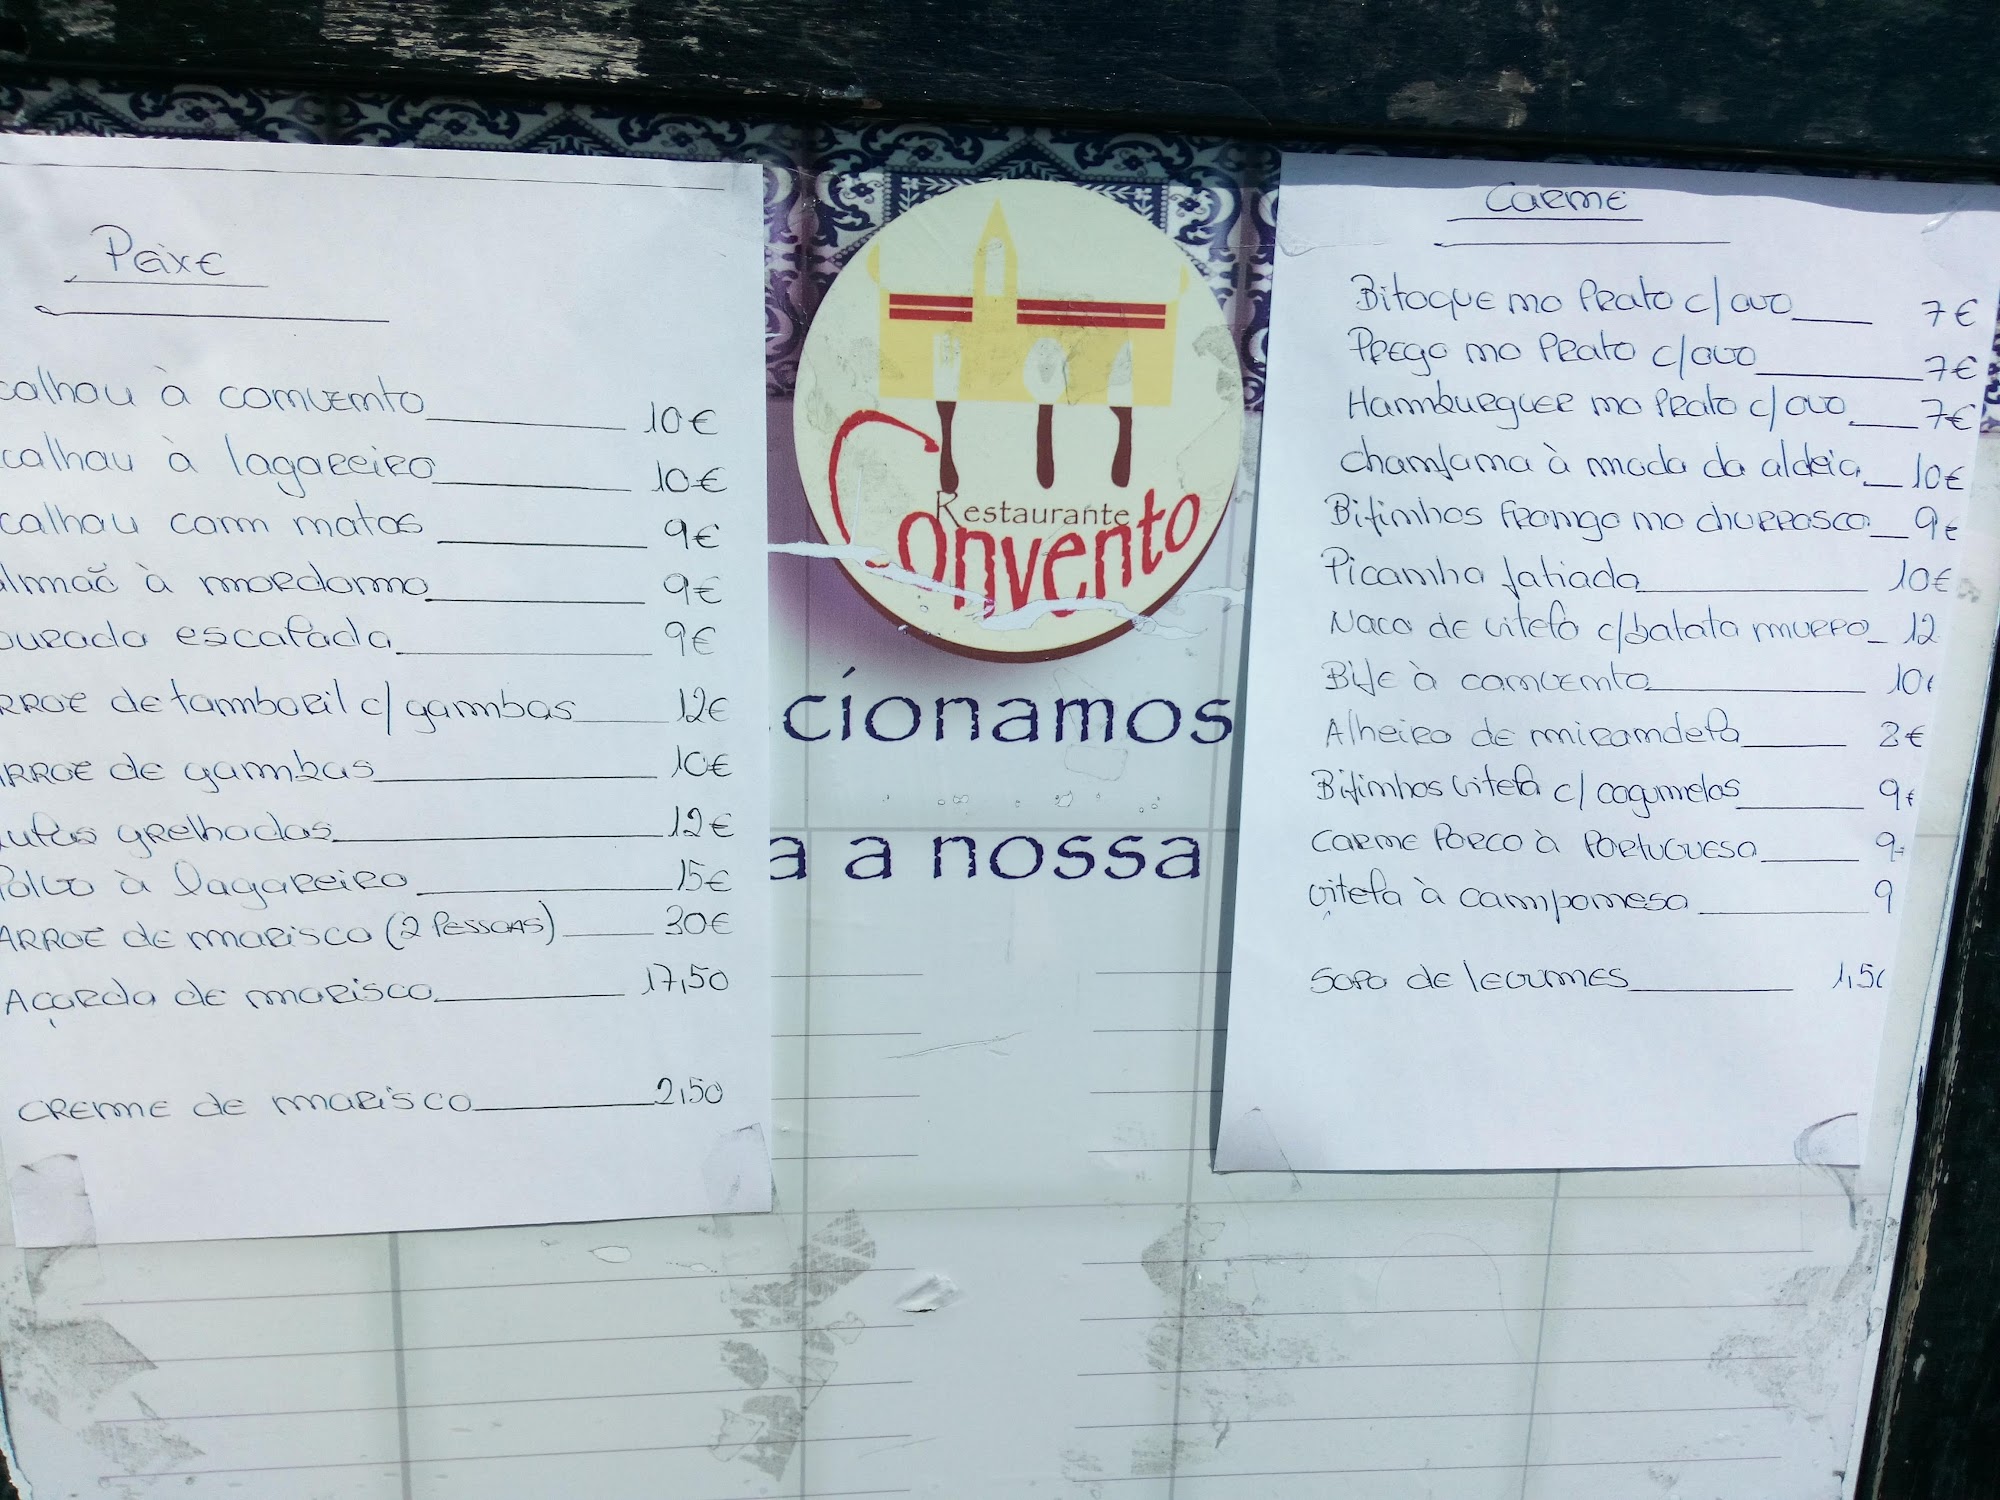 Peixe
calhau à convento 10€
calhau à lagareiro 10€
calhau com natas 9€
almaõ à mordomo 9€
ourada escalada 9€
rroz de tamboril c/ gambas 12€
Arroz de gambas 10€
lulas grelhadas 12€
Polvo à lagareiro 15€
Arroz de marisco (2 Pessoas) 30€
Açorda de marisco 17,50
Creme de marisco 2,50
Restaurante
Convento
cionamos
a a nossa
Carne
Bitoque no Prato c/ ovo 7€
Prego no Prato c/ ovo 7€
Hamburguer no Prato c/ ovo 7€
chanfana à moda da aldeia 10€
Bifinhos frango no churrasco 9€
Picanha fatiada 10€
Naco de vitela c/batata murro 12
Bife à convento 10€
Alheira de mirandela 8€
Bifinhos vitela c/ cogumelos 9€
Carne Porco à Portuguesa 9
vitela à camponesa 9
Sopa de legumes 1,50